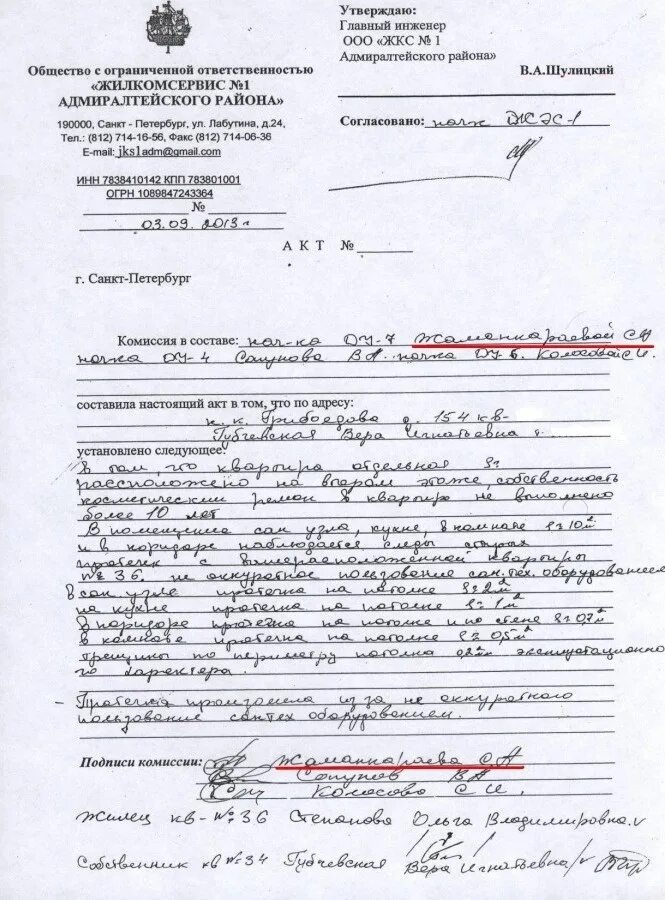 Утверждаю:
Главный инженер
ООО «ЖКС № 1
Адмиралтейского района»
В.А.Шулицкий
Согласовано: начж ЖЭС-1
Общество с ограниченной ответственностью
«ЖИЛКОМСЕРВИС №1
АДМИРАЛТЕЙСКОГО РАЙОНА»
190000, Санкт - Петербург, ул. Лабутина, д.24,
Тел.: (812) 714-16-56, Факс (812) 714-06-36
E-mail: jks1adm@gmail.com
ИНН 7838410142 КПП 783801001
ОГРН 1089847243364
№
03.09.2013г
АКТ №
г. Санкт-Петербург
Комиссия в составе: нач-ка ДУ-7 Жаманкараевой СА
начка ДУ-4 Сапунова ВА. начка ДУ 6. Колосовой С.И.
составила настоящий акт в том, что по адресу:
н. к. Грибоедова д. 154 кв-
Губчевская Вера Игнатьевна
установлено следующее:
В том, что квартира отдельная
рассположено на втором этаже, собственность
косметический ремон в квартире не выполнено
более 10 лет
В помещение сан узла, кухне, в комнате S=10м²
и в коридоре наблюдается следы старых
протечек с вышерасположенной квартиры
№ 36. не аккуратное пользование сан.тех. оборудованием
В сан узле протечка на потолке S=2м²
на кухне протечка на потолке S=1м²
В коридоре протечка на потолке и по стене S=0,7м²
в комнате протечка на потолке S=0,5м²
трещины по периметру потолка 0,2м эксплутационно-
го характера.
- Протечка произошла из за не аккуратного
пользование сантех оборудованием.
Подписи комиссии: Жаманкараева С.А
Сапунов ВА
Колосова С.И.
Жилец кв-№36 Степанова Ольга Владимировна. v
Собственник кв №34 Губчевская Вера Игнатьевна/v